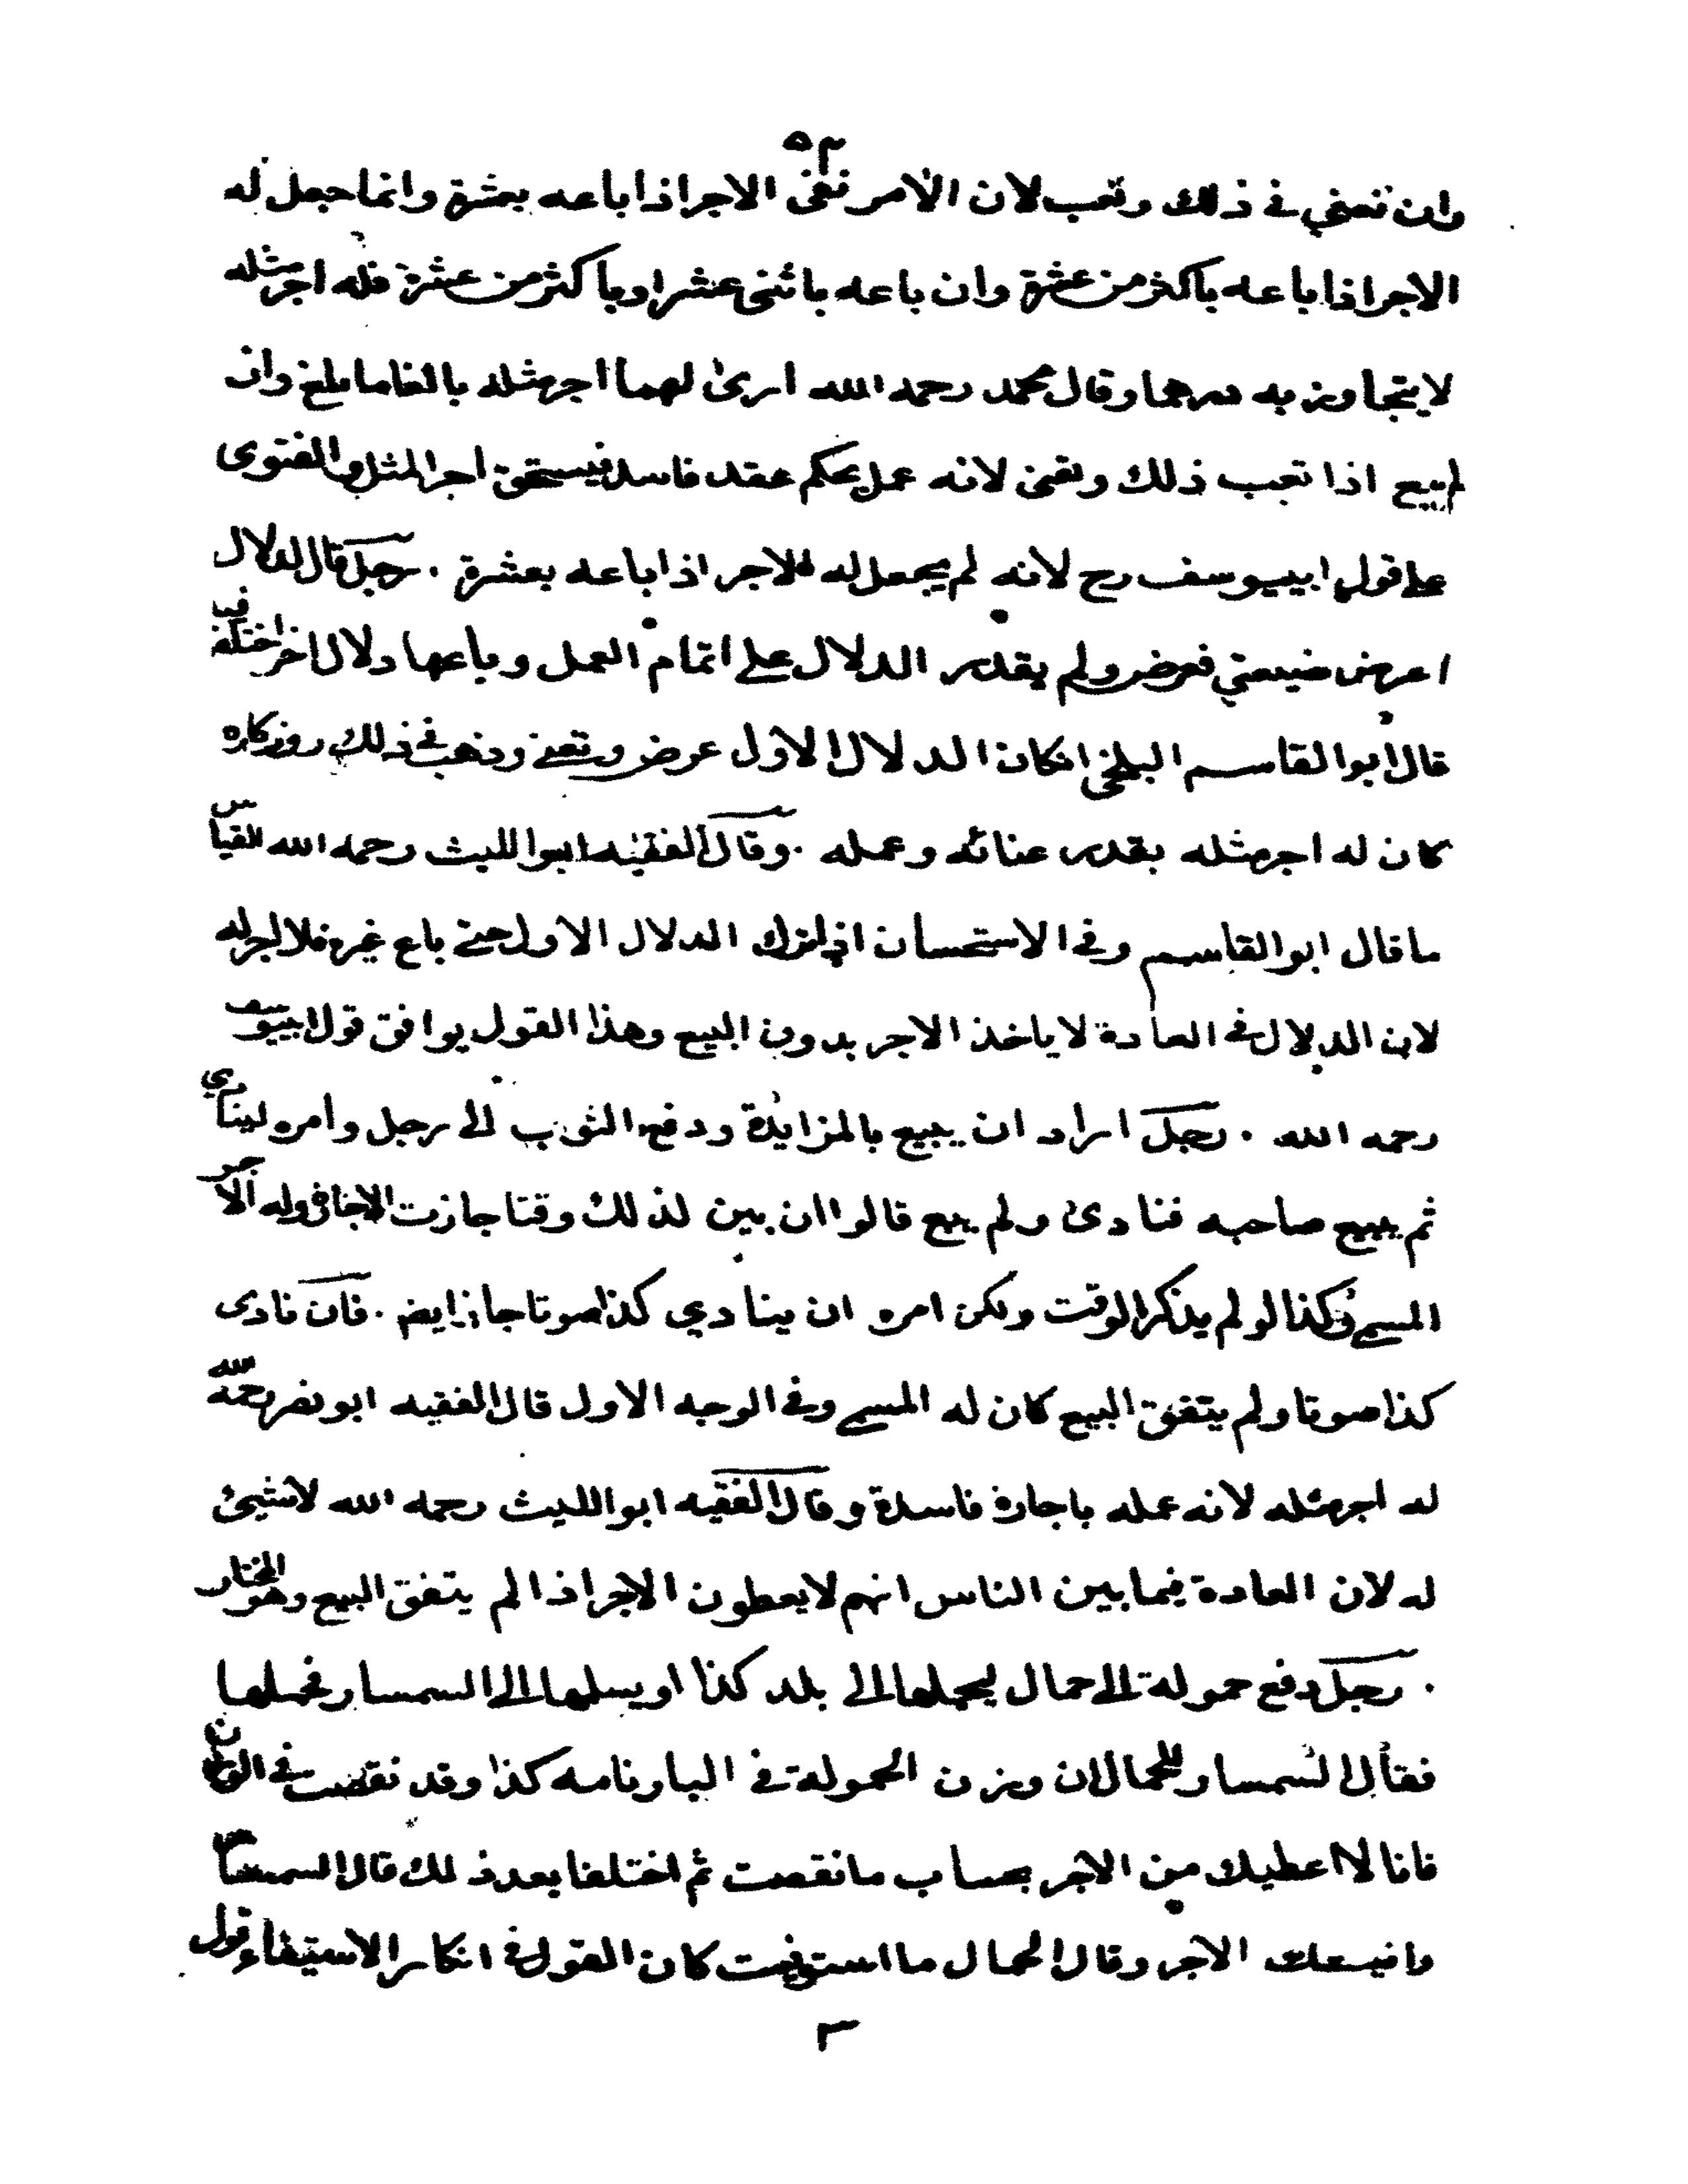 ٥٢
وان تعنى في ذلك وتعب لان الامر نفى الاجر اذا باعه بعشرة وانما جعل له
الاجر اذا باعه باكثر من عشرة وان باعه باثنى عشر او باكثر من عشرة فله اجر مثله
لا يتجاوز به درهما وقال محمد رحمه الله ارى لهما اجر مثله بالغا ما بلغ وان
لم يبع اذا تعب ذلك وتعنى لانه عمل بحكم عقد فاسد فيستحق اجر المثل والفتوى
على قول ابي يوسف رح لانه لم يجعل له الاجر اذا باعه بعشرة . رجل قال لدلال
اعرض ضيعتي فعرض ولم يقدر الدلال على اتمام العمل وباعها دلال اخر اختلف فيه
قال ابو القاسم البلخى انكان الدلال الاول عرض وتعنى وذهب في ذلك روزكاره
كان له اجر مثله بقدر عنائه وعمله . وقال الفقيه ابو الليث رحمه الله القياس
ما قال ابو القاسم وفى الاستحسان اذا ترك الدلال الاول حتى باع غيره فلا اجر له
لان الدلال في العادة لا ياخذ الاجر بدون البيع وهذا القول يوافق قول ابي يوسف
رحمه الله . رجل اراد ان يبيع بالمزايدة ودفع الثوب الى رجل وامره لينادي
ثم يبيع صاحبه فنادى ولم يبع قالوا ان بين لذلك وقتا جازت الاجارة وله الاجر
المسمى وكذا لو لم يذكر الوقت ولكن امره ان ينادي كذا صوتا جاز ايضا . فان نادى
كذا صوتا ولم يتفق البيع كان له المسمى وفى الوجه الاول قال الفقيه ابو نصر رحمه الله
له اجر مثله لانه عمله باجارة فاسدة وقال الفقيه ابو الليث رحمه الله لا شيئ
له لان العادة فيما بين الناس انهم لا يعطون الاجر اذا لم يتفق البيع وهو المختار
. رجل دفع حمولة الى حمال ليحملها الى بلد كذا او يسلمها الى السمسار فحملها
فقال السمسار للحمال ان وزن الحمولة في البارنامه كذا وقد نقصت في الوزن
فانا لا اعطيك من الاجر بحساب ما نقصت ثم اختلفا بعد ذلك قال السمسار
وافيتك الاجر وقال الحمال ما استوفيت كان القول في انكار الاستيفاء قول
٣